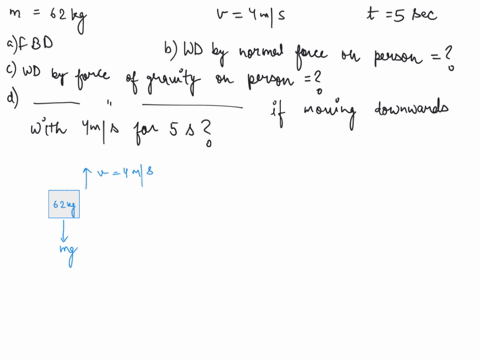 m = 62kg v = 4m/s t = 5 sec
a) FBD b) WD by normal force on person = ?
c) WD by force of gravity on person = ?
d) ____ " ____ if moving downwards
with 4m/s for 5 s?
v = 4m/s
62kg
mg